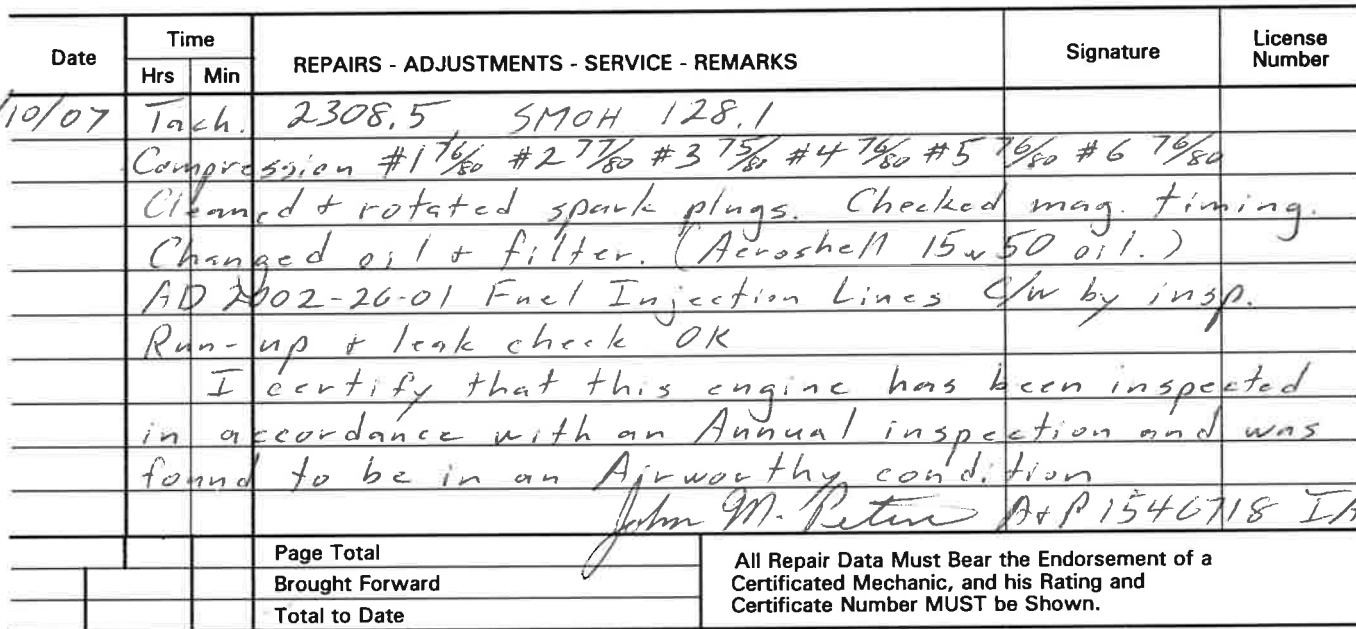 Date Time REPAIRS - ADJUSTMENTS - SERVICE - REMARKS Signature License Number
Hrs Min
/10/07 Tach. 2308.5 SMOH 128.1
Compression #1 76/80 #2 77/80 #3 75/80 #4 76/80 #5 76/80 #6 76/80
Cleaned + rotated spark plugs. Checked mag. timing.
Changed oil + filter. (Aeroshell 15w50 oil.)
AD 2002-26-01 Fuel Injection Lines C/W by insp.
Run-up + leak check OK
I certify that this engine has been inspected
in accordance with an Annual inspection and was
found to be in an Airworthy condition
John M. A+P 1546718 IA
Page Total
Brought Forward
Total to Date
All Repair Data Must Bear the Endorsement of a
Certificated Mechanic, and his Rating and
Certificate Number MUST be Shown.